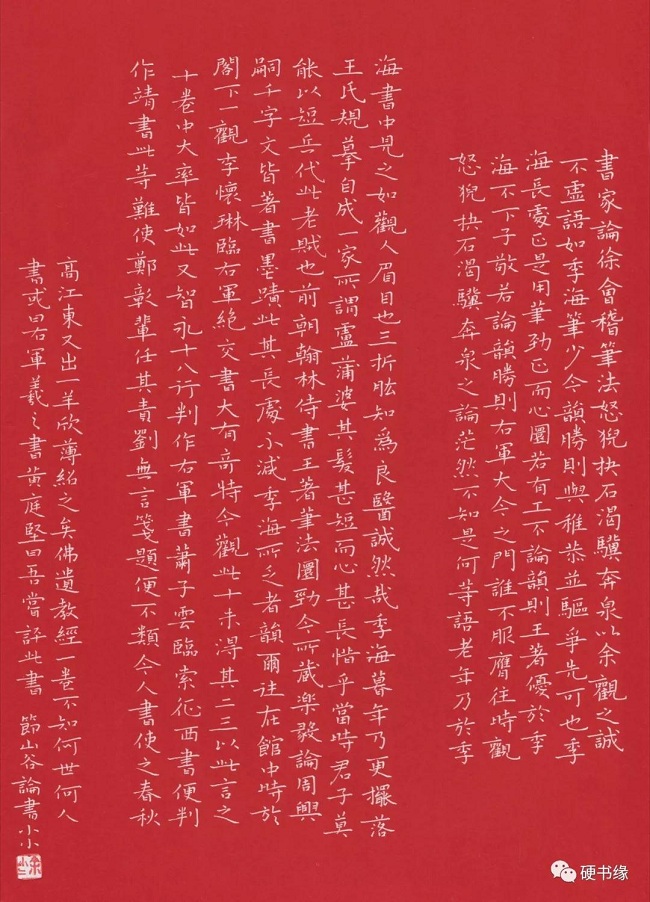 書家論徐會稽筆法怒猊抉石渴驥奔泉以余觀之誠
不虛語如季海筆少令韻勝則與稚恭並驅爭先可也季
海長處正是用筆勁正而心圓若有工不論韻則王著優於季
海不下子敬若論韻勝則右軍大令之門誰不服膺往時觀
怒猊抉石渴驥奔泉之論茫然不知是何等語老年乃於季
海書中見之如觀人眉目也三折肱知爲良醫誠然哉季海暮年乃更擺落
王氏規摹自成一家所謂盧蒲婆其髮甚短而心甚長惜乎當時君子莫
能以短兵代此老賊也前朝翰林侍書王著筆法圜勁今所藏樂毅論周興
嗣千字文皆著書墨蹟此其長處不減季海所乏者韻爾往在館中時於
閣下一觀李懷琳臨右軍絕交書大有奇特今觀此十未得其二三以此言之
十卷中大率皆如此又智永十八行判作右軍書蕭子雲臨索征西書便判
作靖書此等難使鄭彰輩任其責劉無言箋題便不類今人書使之春秋
高江東又出一羊欣薄紹之矣佛遺教經一卷不知何世何人
書或曰右軍羲之書黃庭堅曰吾嘗評此書 節山谷論書小小
硬书缘